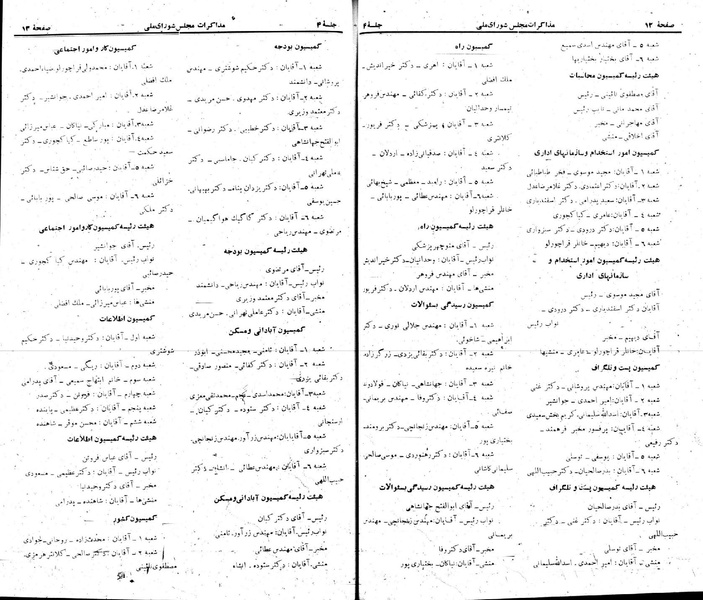 صفحهٔ ۱۲
مذاکرات مجلس شورای ملی
جلسهٔ ۴
شعبه ۵ ـ آقای مهندس اسدی سمیع
شعبه ۶ـ آقای بختیار بختیاریها
هیئت رئیسه کمیسیون محاسبات
آقای مصطفوی نائینی ـ رئیس
آقای محمد مانی ـ نایب رئیس
آقای مهاجرانی ـ مخبر
آقای اخلاقی ـ منشی
کمیسیون امور استخدام و سازمانهای اداری
شعبه ۱ـ آقایان: مجید موسوی ـ فخر طباطبائی
شعبه ۲ـ آقایان: دکتر اعتمادی ـ دکتر غلامرضا عدل
شعبه ۳ـ آقایان: سعید پدرامی ـ دکتر اسفندیاری
شعبه ۴ ـ آقایان: عامری ـ کیا کجوری
شعبه ۵ـ آقایان: دکتر درودی ـ دکتر سبزواری
شعبه ۶ ـ آقایان: دیهیم ـ خاطر قراچورلو
هیئت رئیسه کمیسیون امور استخدام و
سازمانهای اداری
آقای مجید موسوی ـ رئیس
آقایان: دکتر اسفندیاری ـ دکتر درودی ـ
نواب رئیس
آقای دیهیم ـ مخبر
آقایان: خاطر قراچورلو ـ عامری ـ منشیها
کمیسیون پست و تلگراف
شعبه ۱ ـ آقایان: مهندس پروشانی ـ دکتر غنی
شعبه ۲ ـ آقایان: امیر احمدی ـ جوانشیر
شعبه ۳ـ آقایان: اسدالله سلیمانی ـ کریم بخش سعیدی
شعبه ۴ـ آقایان: پرفسور مخبر فرهمند ـ
دکتر رفیعی
شعبه ۵ ـ آقایان: یوسفی ـ توسلی
شعبه ۶ ـ آقایان: بدر صالحیان ـ دکتر حبیب اللهی
هیئت رئیسه کمیسیون پست و تلگراف
رئیس ـ آقای بدر صالحیان
نواب رئیس ـ آقایان: دکتر غنی ـ دکتر
حبیب اللهی
مخبر ـ آقای توسلی
منشی ـ آقایان: امیر احمدی ـ اسدالله سلیمانی
کمیسیون راه
شعبه ۱ ـ آقایان: اهری ـ دکتر خیراندیش ـ
ملک افضلی
شعبه ۲ ـ آقایان: دکتر کفائی ـ مهندس فروهر
تیمسار وحدانیان
شعبه ۳ ـ آقایان: پزشکی ـ دکتر فربور ـ
کلانتری
شعبه ۴ ـ آقایان: صدقیانی زاده ـ اردلان ـ
دکتر سعید
شعبه ۵ ـ آقایان: رامبد ـ معظمی ـ شیخ بهائی
شعبه ۶ـ آقایان: مهندس عطائی ـ پوربابائی ـ
خاطر قراچورلو
هیئت رئیسه کمیسیون راه ـ
رئیس ـ آقای منوچهر پزشکی
نواب رئیس ـ آقایان: وحدانیان ـ دکتر خیراندیش
مخبر ـ آقای مهندس فروهر
منشی ـ آقایان: مهندس اردلان ـ دکتر فربور
کمیسیون رسیدگی بسئوالات
شعبه ۱ ـ آقایان: مهندس جلالی نوری ـ دکتر
ابراهیمی ـ شاخوئی
شعبه ۲ ـ آقایان: دکتر بقائی یزدی ـ زرگرزاده
خانم نیره سعیدی
شعبه ۳ ـ آقایان: جهانشاهی ـ نیاکان ـ فولادوند
شعبه ۴ ـ آقایان: دکتر وفا ـ مهندس بریمانی ـ
صفائی
شعبه ۵ـ آقایان: مهندس زنجانچی ـ دکتر برومند ـ
بختیاری پور
شعبه ۶ ـ آقایان: دکتر رهنوردی ـ موسی صالحی ـ
سلیمانی کاشانی
هیئت رئیسه کمیسیون رسیدگی بسئوالات
رئیس ـ آقای ابوالفتح جهانشاهی
نواب رئیس ـ آقایان: مهندس زنجانچی ـ مهندس
بریمانی
مخبر ـ آقای دکتر وفا
منشی ـ آقایان: نیاکان ـ بختیاری پور
جلسهٔ ۴
مذاکرات مجلس شورای ملی
صفحهٔ ۱۳
کمیسیون بودجه
شعبه ۱ـ آقایان: دکتر حکیم شوشتری ـ مهندس
پروشانی ـ دانشمند
شعبه ۲ ـ آقایان: دکتر مهدوی ـ حسن مریدی ـ
دکتر معتمد وزیری
شعبه ۳ ـ آقایان: دکتر خطیبی ـ دکتر رضوانی ـ
ابوالفتح جهانشاهی
شعبه ۴ـ آقایان: دکتر کیان ـ جاماسبی ـ دکتر
عاملی تهرانی
شعبه ۵ـ آقایان: دکتر یزدان پناه ـ دکتر بهبهانی
حسین یوسفی
شعبه ۶ ـ آقایان: دکتر گاگیک هواگیمیان ـ
مرتضوی ـ مهندس ریاحی
هیئت رئیسه کمیسیون بودجه
رئیس ـ آقای مرتضوی
نواب رئیس ـ آقایان: مهندس ریاحی ـ دانشمند
مخبر ـ آقای دکتر معتمد وزیری
منشی ـ آقایان: دکتر عاملی تهرانی ـ حسن مریدی
کمیسیون آبادانی و مسکن
شعبه ۱ ـ آقایان: ثامنی ـ مجید محسنی ـ ابوذر
شعبه ۲ ـ آقایان: دکتر کفائی ـ منصور صادقی ـ
دکتر بقائی یزدی
شعبه ۳ـ آقایان: محمد اسدی ـ محمد تقی معزی
ارسنجانی
شعبه ۴ـ آقایان: دکتر ستوده ـ دکتر کیان ـ
شعبه ۵ـ آقایان: مهندس زرآور ـ مهندس زنجانچی ـ
دکتر سبزواری
شعبه ۶ ـ آقایان: مهندس عطائی ـ انشاء ـ دکتر
حبیب اللهی
هیئت رئیسه کمیسیون آبادانی و مسکن
رئیس ـ آقای دکتر کیان
نواب رئیس ـ آقایان: مهندس زرآور ـ ثامنی ـ
مخبر ـ آقای مهندس عطائی
منشی ـ آقایان: دکتر ستوده ـ انشاء
کمیسیون کار و امور اجتماعی
شعبه ۱ـ آقایان: محمدولی قراچورلو ـ صیاد احمدی ـ
ملک افضلی
شعبه ۲ـ آقایان: امیر احمدی ـ جوانشیر ـ دکتر
غلامرضا عدل
شعبه ۳ـ آقایان: مبارکی ـ نیاکان ـ عباس میرزائی
شعبه ۴ـ آقایان: پور ساطع ـ کیا کجوری ـ دکتر
سعید حکمت
شعبه ۵ ـ آقایان: حیدر صائبی ـ حق شناس ـ دکتر
خزائلی
شعبه ۶ ـ آقایان: موسی صالحی ـ پوربابائی ـ
دکتر ملکی
هیئت رئیسه کمیسیون کار و امور اجتماعی
رئیس ـ آقای جوانشیر
نواب رئیس ـ آقایان: مهندس کیا کجوری ـ
حیدر صائبی
مخبر ـ آقای پوربابائی
منشی ها: عباس میرزائی ـ ملک افضلی
کمیسیون اطلاعات
شعبه اول ـ آقایان: دکتر وحیدنیا ـ دکتر حکیم
شوشتری
شعبه دوم ـ آقایان: ریگی ـ مسعودی
شعبه سوم ـ خانم ابتهاج سمیعی ـ آقای پدرامی
شعبه چهارم ـ آقایان: فیوضی ـ دکتر صدر
شعبه پنجم ـ آقایان: دکتر عظیمی ـ پاینده
شعبه ششم ـ آقایان: محسن موقر ـ شاهنده
هیئت رئیسه کمیسیون اطلاعات
رئیس ـ آقای عباس فروتن
نواب رئیس ـ آقایان: دکتر عظیمی ـ مسعودی
مخبر ـ آقای دکتر وحیدنیا
منشی ها ـ آقایان: شاهنده ـ پدرامی
کمیسیون کشور
شعبه ۱ ـ آقایان: محدث زاده ـ روحانی ـ خوادی
شعبه ۲ ـ آقایان: دکتر صالحی ـ کلانتر هرمزی ـ
مصطفوی نائینی